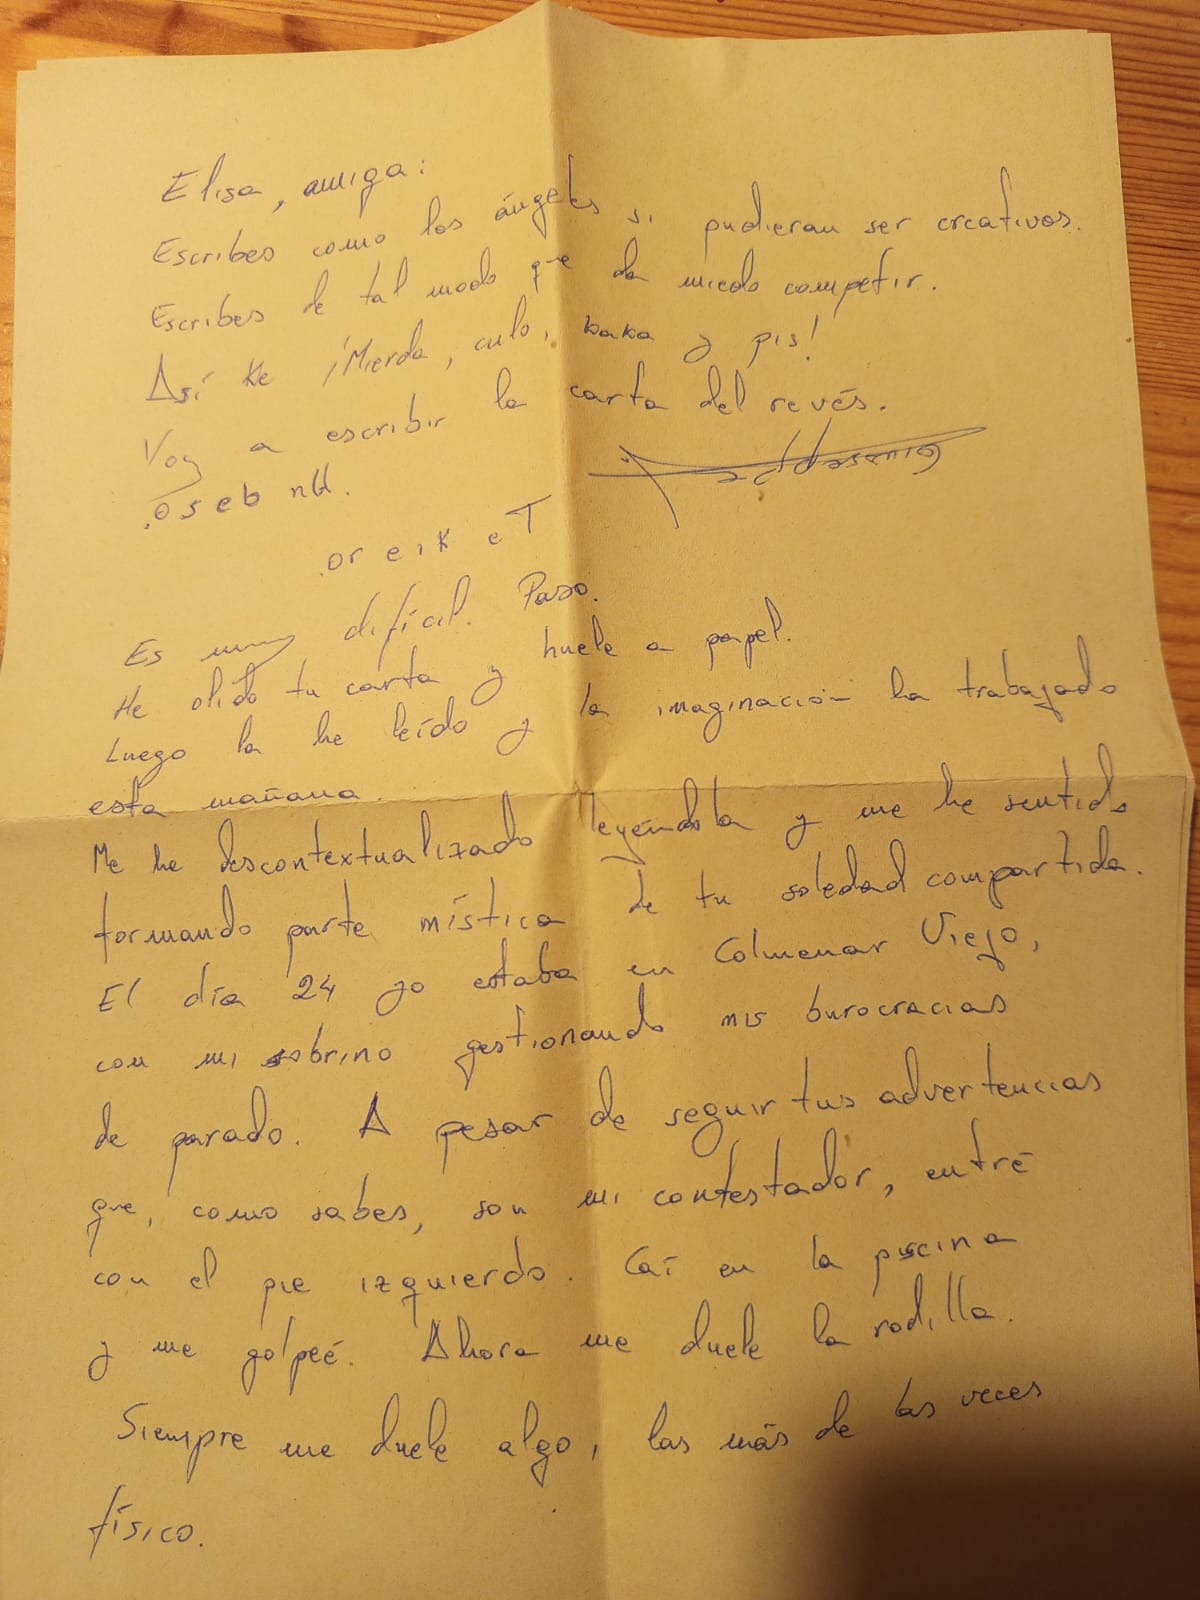 Elisa, amiga:
Escribes como los ángeles si pudieran ser creativos.
Escribes de tal modo que da miedo competir.
Así ke ¡Mierda, culo, kaka y pis!
Voy a escribir la carta del revés.
.oseb nU.
.oreiK eT
Es muy difícil. Paso.
He olido tu carta y huele a papel.
Luego la he leído y la imaginación ha trabajado
esta mañana.
Me he descontextualizado leyéndola y me he sentido
formando parte mística de tu soledad compartida.
El día 24 yo estaba en Colmenar Viejo,
con mi sobrino gestionando mis burocracias
de parado. A pesar de seguir tus advertencias
que, como sabes, son mi contestador, entré
con el pie izquierdo. Caí en la piscina
y me golpeé. Ahora me duele la rodilla.
Siempre me duele algo, las más de las veces
físico.